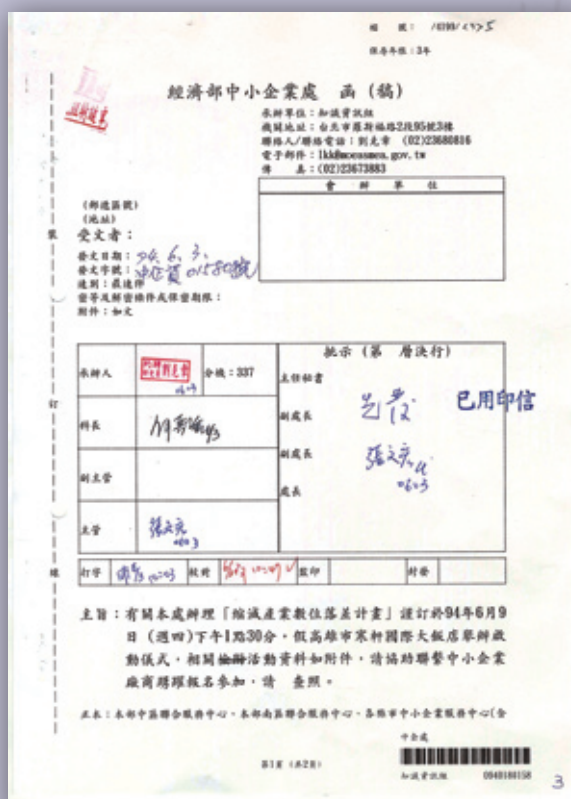 檔　號：
保存年限：3年
經濟部中小企業處　函（稿）
承辦單位：知識資訊組
機關地址：台北市羅斯福路2段95號3樓
聯絡人/聯絡電話：劉克章　(02)23680816
電子郵件：lkk@moeasmea.gov.tw
傳　真：(02)23673883
會　辦　單　位
（郵遞區號）
（地址）
受文者：
發文日期：94. 6. 3.
發文字號：中企資 01580號
速別：最速件
密等及解密條件或保密期限：
附件：如文
承辦人
0603
分機：337
批示（第　層決行）
主任秘書
副處長
先發
已用印信
科長
副處長
張文宏代
0603
副主管
處長
主管
張文宏
0603
打字
校對
監印
封發
主旨：有關本處辦理「縮減產業數位落差計畫」謹訂於94年6月9
日（週四）下午1點30分，假高雄市寒軒國際大飯店舉辦啟
動儀式，相關活動資料如附件，請協助聯繫中小企業
廠商踴躍報名參加，請　查照。
正本：本部中區聯合服務中心、本部南區聯合服務中心、各縣市中小企業服務中心(含
裝
訂
線
第1頁（共2頁）
中企處
知識資訊組　0940180158
3